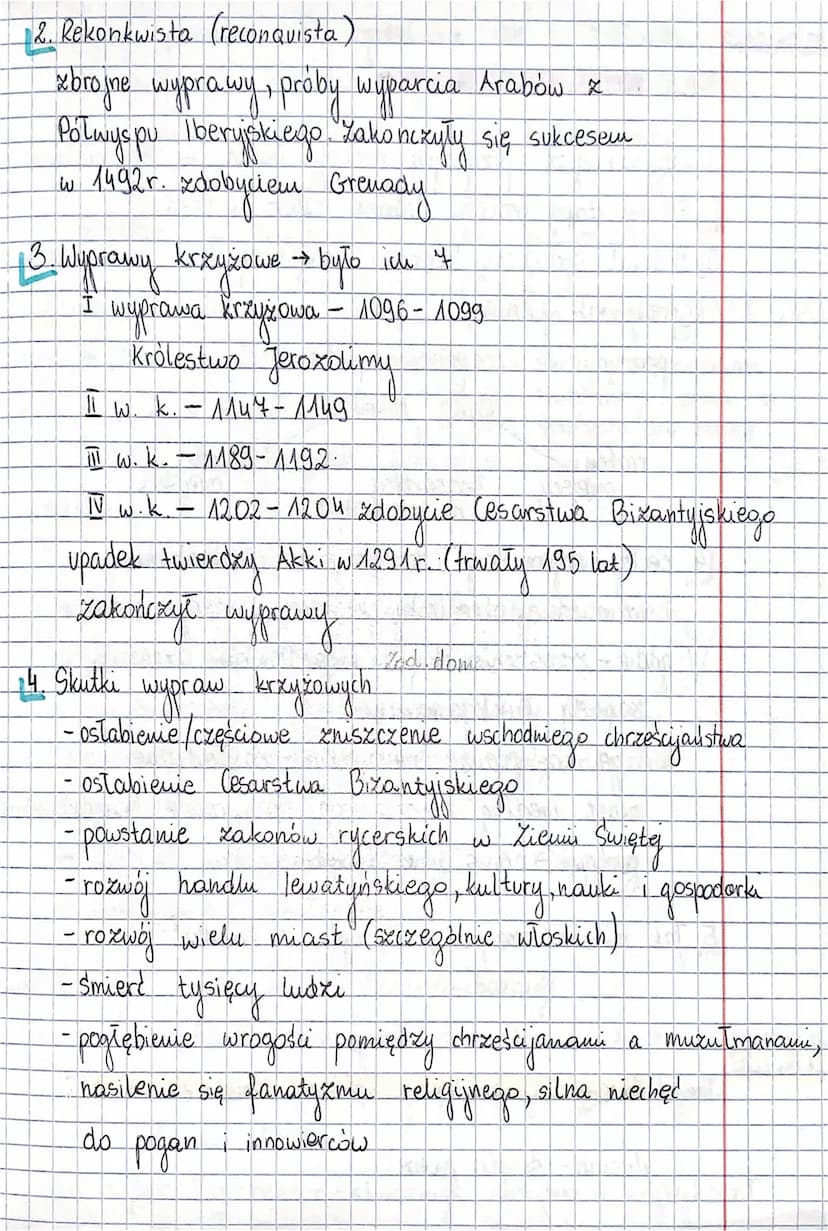 2. Rekonkwista (reconquista)
zbrojne wyprawy, próby wyparcia Arabów z
Półwyspu Iberyjskiego. Zakończyły się sukcesem
w 1492r. zdobyciem Grenady
3. Wyprawy krzyżowe → było ich 7
I wyprawa krzyżowa – 1096 - 1099
Królestwo Jerozolimy
II w. k. – 1147 - 1149
III w. k. – 1189 - 1192
IV w. k. – 1202 - 1204 zdobycie Cesarstwa Bizantyjskiego
upadek twierdzy Akki w 1291r. (trwały 195 lat)
zakończył wyprawy
Zad. dom
4. Skutki wypraw krzyżowych
- osłabienie/częściowe zniszczenie wschodniego chrześcijaństwa
- osłabienie Cesarstwa Bizantyjskiego
- powstanie zakonów rycerskich w Ziemii Świętej
- rozwój handlu lewatyńskiego, kultury, nauki i gospodarki
- rozwój wielu miast (szczególnie włoskich)
- śmierć tysięcy ludzi
- pogłębienie wrogości pomiędzy chrześcijanami a muzułmanami,
nasilenie się fanatyzmu religijnego, silna niechęć
do pogan i innowierców